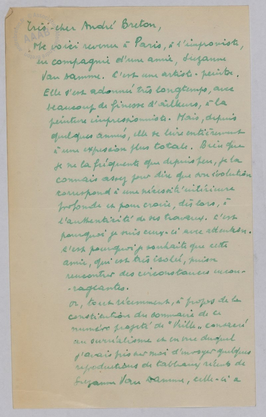 Très cher André Breton,
Me voici revenu à Paris, à l'improviste,
en compagnie d'une amie, Suzanne
Van Damme. C'est une artiste-peintre.
Elle s'est adonnée très longtemps, avec
beaucoup de finesse d'ailleurs, à la
peinture impressionniste. Mais, depuis
quelques années, elle se livre entièrement
à une expression plus totale. Bien que
je ne la fréquente que depuis peu, je la
connais assez pour dire que son évolution
correspond à une nécessité intérieure
profonde et pour croire, dès lors, à
l'authenticité de ses travaux. C'est
pourquoi je suis ceux-ci avec attention.
C'est pourquoi je souhaite que cette
amie, qui est très isolée, puisse
rencontrer des circonstances encou-
rageantes.
Or, tout récemment, à propos de la
constitution du sommaire de ce
numéro projeté de "Ville", consacré
au surréalisme et en vue duquel
j'avais pris sur moi d'envoyer quelques
reproductions de tableaux récents de
Suzanne Van Damme, celle-ci a